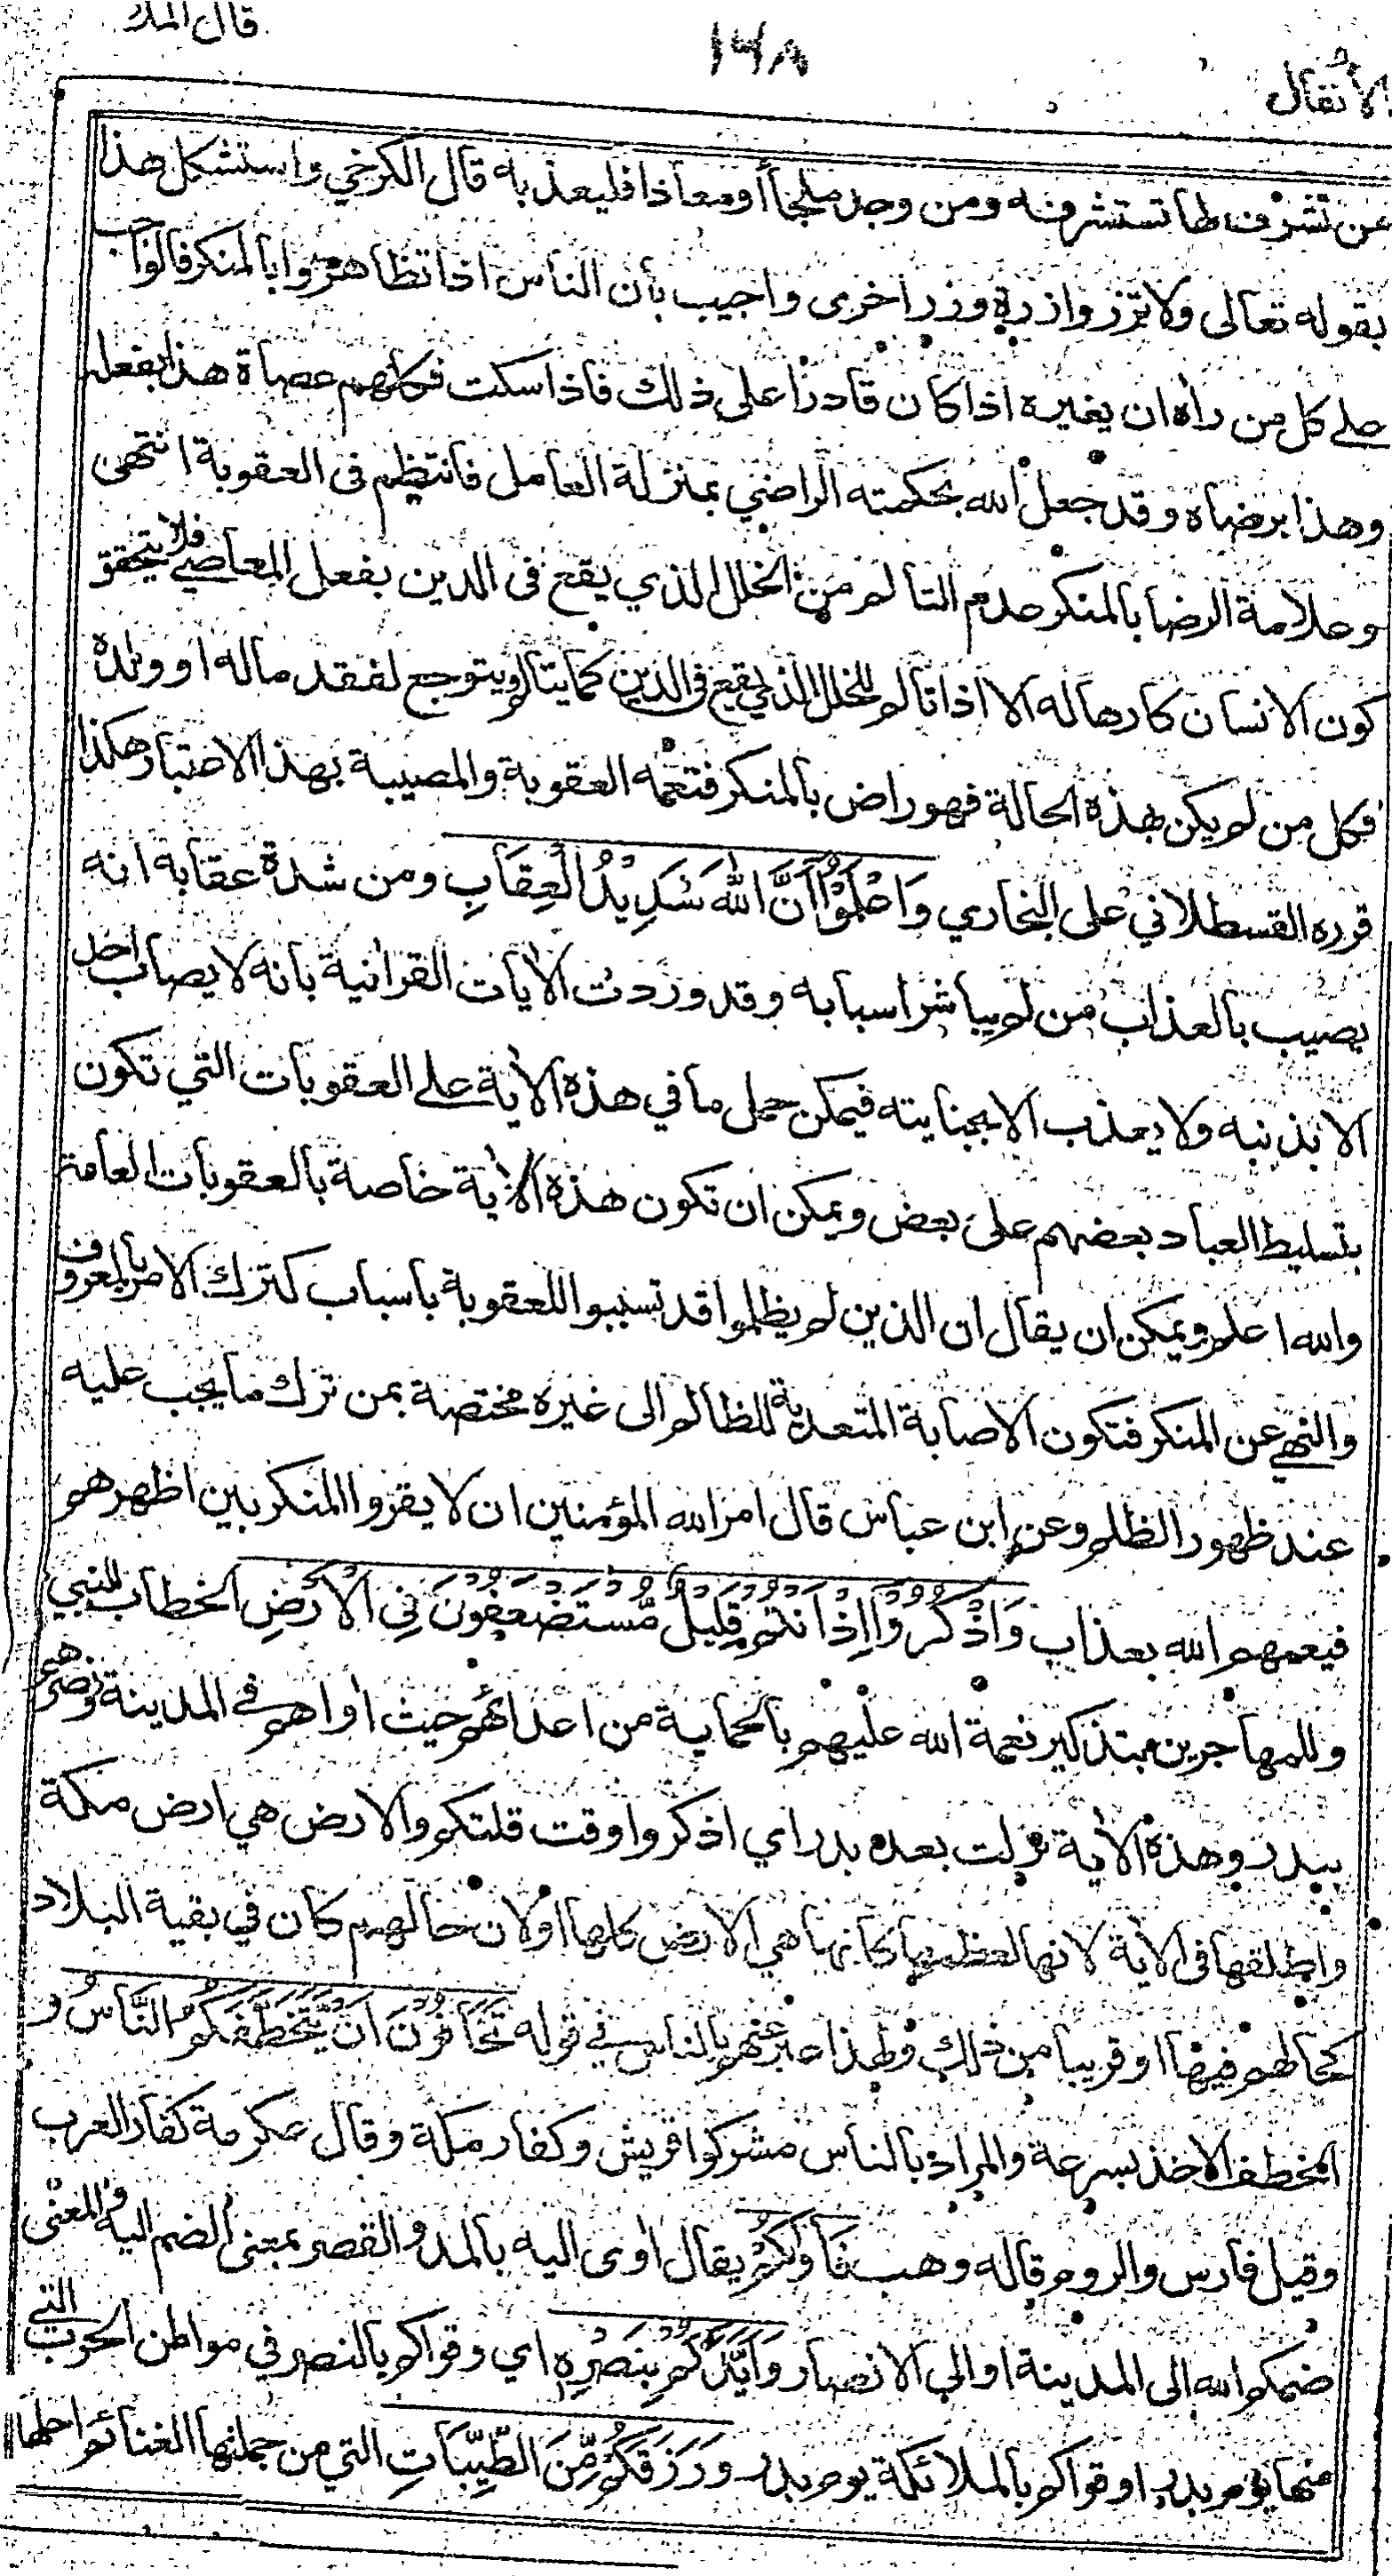 قال الملأ
١٦٨
الأنفال
من تشرف لها تستشرفه ومن وجد ملجأ أو معاذا فليعذ به قال الكرخي واستشكل هذا
بقوله تعالى ولا تزر وازرة وزر اخرى واجيب بأن الناس اذا تظاهروا بالمنكر فالواجب
على كل من رأه ان يغيره اذا كان قادرا على ذلك فاذا سكت فكلهم عصاة هذا بفعله
وهذا برضاه وقد جعل الله بحكمته الراضي بمنزلة العامل فانتظم فى العقوبة انتهى
وعلامة الرضا بالمنكر عدم التألم من الخلل الذي يقع فى الدين بفعل المعاصي فلا يتحقق
كون الانسان كارها له الا اذا تألم للخلل الذي يقع فى الدين كما يتألم ويتوجع لفقد ماله او ولده
فكل من لم يكن بهذه الحالة فهو راض بالمنكر فتعمه العقوبة والمصيبة بهذا الاعتبار هكذا
قرره القسطلاني على البخاري وَاعْلَمُوْا اَنَّ اللّٰهَ شَدِيْدُ الْعِقَابِ ومن شدة عقابه انه
يصيب بالعذاب من لم يباشر اسبابه وقد وردت الأيات القرانية بأنه لا يصاب احد
الا بذنبه ولا يعذب الا بجنايته فيمكن حمل ما في هذه الأية على العقوبات التي تكون
بتسليط العباد بعضهم على بعض ويمكن ان تكون هذه الأية خاصة بالعقوبات العامة
والله اعلم ويمكن ان يقال ان الذين لم يظلموا قد تسببوا للعقوبة بأسباب كترك الامر بالمعروف
والنهي عن المنكر فتكون الاصابة المتعدية للظالم الى غيره مختصة بمن ترك ما يجب عليه
عند ظهور الظلم وعن ابن عباس قال امر الله المؤمنين ان لا يقروا المنكر بين اظهرهم
فيعمهم الله بعذاب وَاذْكُرُوْا اِذْ اَنْتُمْ قَلِيْلٌ مُّسْتَضْعَفُوْنَ فِى الْاَرْضِ الخطاب للنبي
وللمهاجرين بتذكير نعمة الله عليهم بالحماية من اعدائهم حيث أواهم في المدينة ونصرهم
ببدر وهذه الأية نزلت بعد بدر اي اذكروا وقت قلتكم والارض هي ارض مكة
واطلقها فى الأية لانها لعظمها كأنها هي الارض كلها او لان حالهم كان في بقية البلاد
كحالهم فيها او قريبا من ذلك ولهذا عبر عنهم بالناس في قوله تَخَافُوْنَ اَنْ يَّتَخَطَّفَكُمُ النَّاسُ و
الخطف الاخذ بسرعة والمراد بالناس مشركوا قريش وكفار مكة وقال عكرمة كفار العرب
وقيل فارس والروم قاله وهب فَأٰوٰكُمْ يقال أوى اليه بالمد والقصر بمعنى انضم اليه والمعنى
ضمكم الله الى المدينة او الى الانصار وَاَيَّدَكُمْ بِنَصْرِهٖ اي وقواكم بالنصر في مواطن الحرب التي
منها يوم بدر او قواكم بالملائكة يوم بدر وَرَزَقَكُمْ مِّنَ الطَّيِّبَاتِ التي من جملتها الغنائم احلها